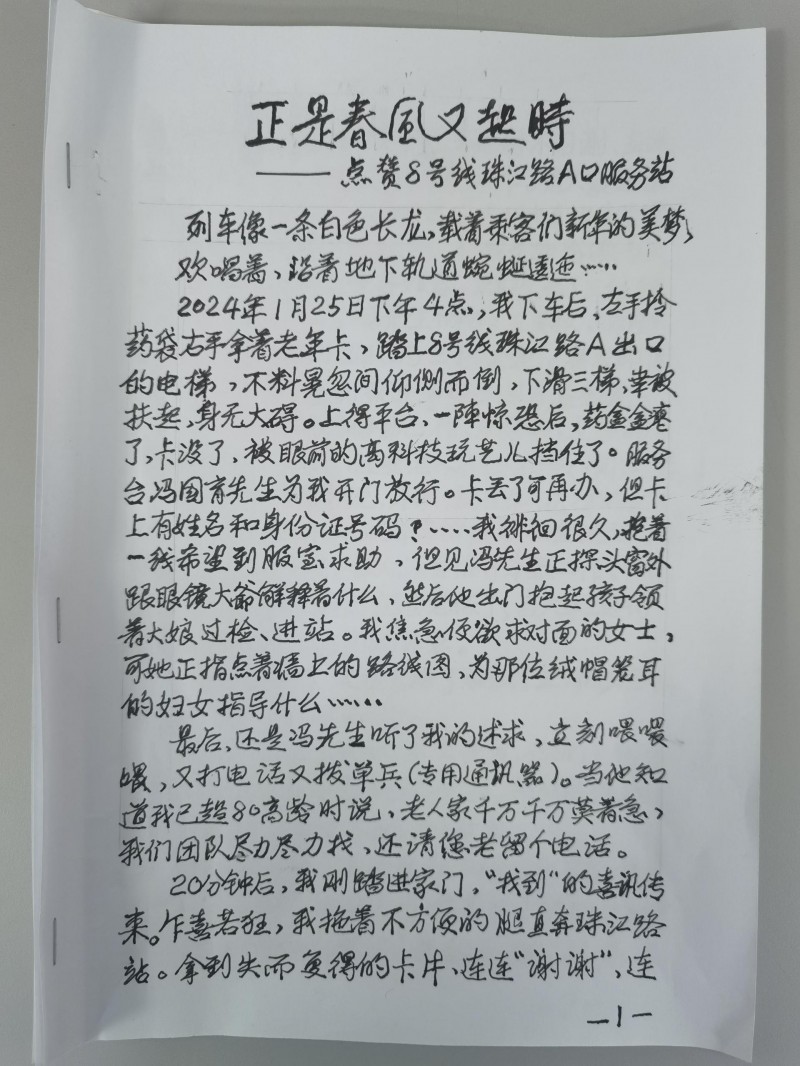 正是春風又起時
——点赞8号线珠江路A口服务站
列车像一条白色长龙,载着乘客们新年的美梦,
欢唱着、沿着地下轨道蜿蜒逶迤……
2024年1月25日下午4点,我下车后、左手拎
药袋右手拿着老年卡,踏上8号线珠江路A出口
的电梯,不料晃忽间仰侧而倒,下滑三梯,幸被
扶起,身无大碍。上得平台、一陣惊恐后,药盒盒塞
了,卡没了,被眼前的高科技玩艺儿挡住了。服务
台冯国育先生为我开门放行。卡丢了可再办,但卡
上有姓名和身份证号码?……我徘徊很久,抱着
一线希望到服室求助、但见冯先生正探头窗外
跟眼镜大爷解释着什么、然后他出门抱起孩子领
着大娘过检、进站。我焦急便欲求对面的女士,
可她正指点着墙上的路线图,为那位绒帽笼耳
的妇女指导什么……
最后,还是冯先生听了我的述求,立刻喂喂
喂,又打电话又拨单兵(专用通讯器)。当他知
道我已超80高龄时说,老人家千万千万莫着急,
我们团队尽力尽力找,还请您老留个电话。
20分钟后,我刚踏进家门,“找到”的喜讯传
来。乍喜若狂,我拖着不方便的腿直奔珠江路
站。拿到失而复得的卡片、连连“谢谢”,连
—1—